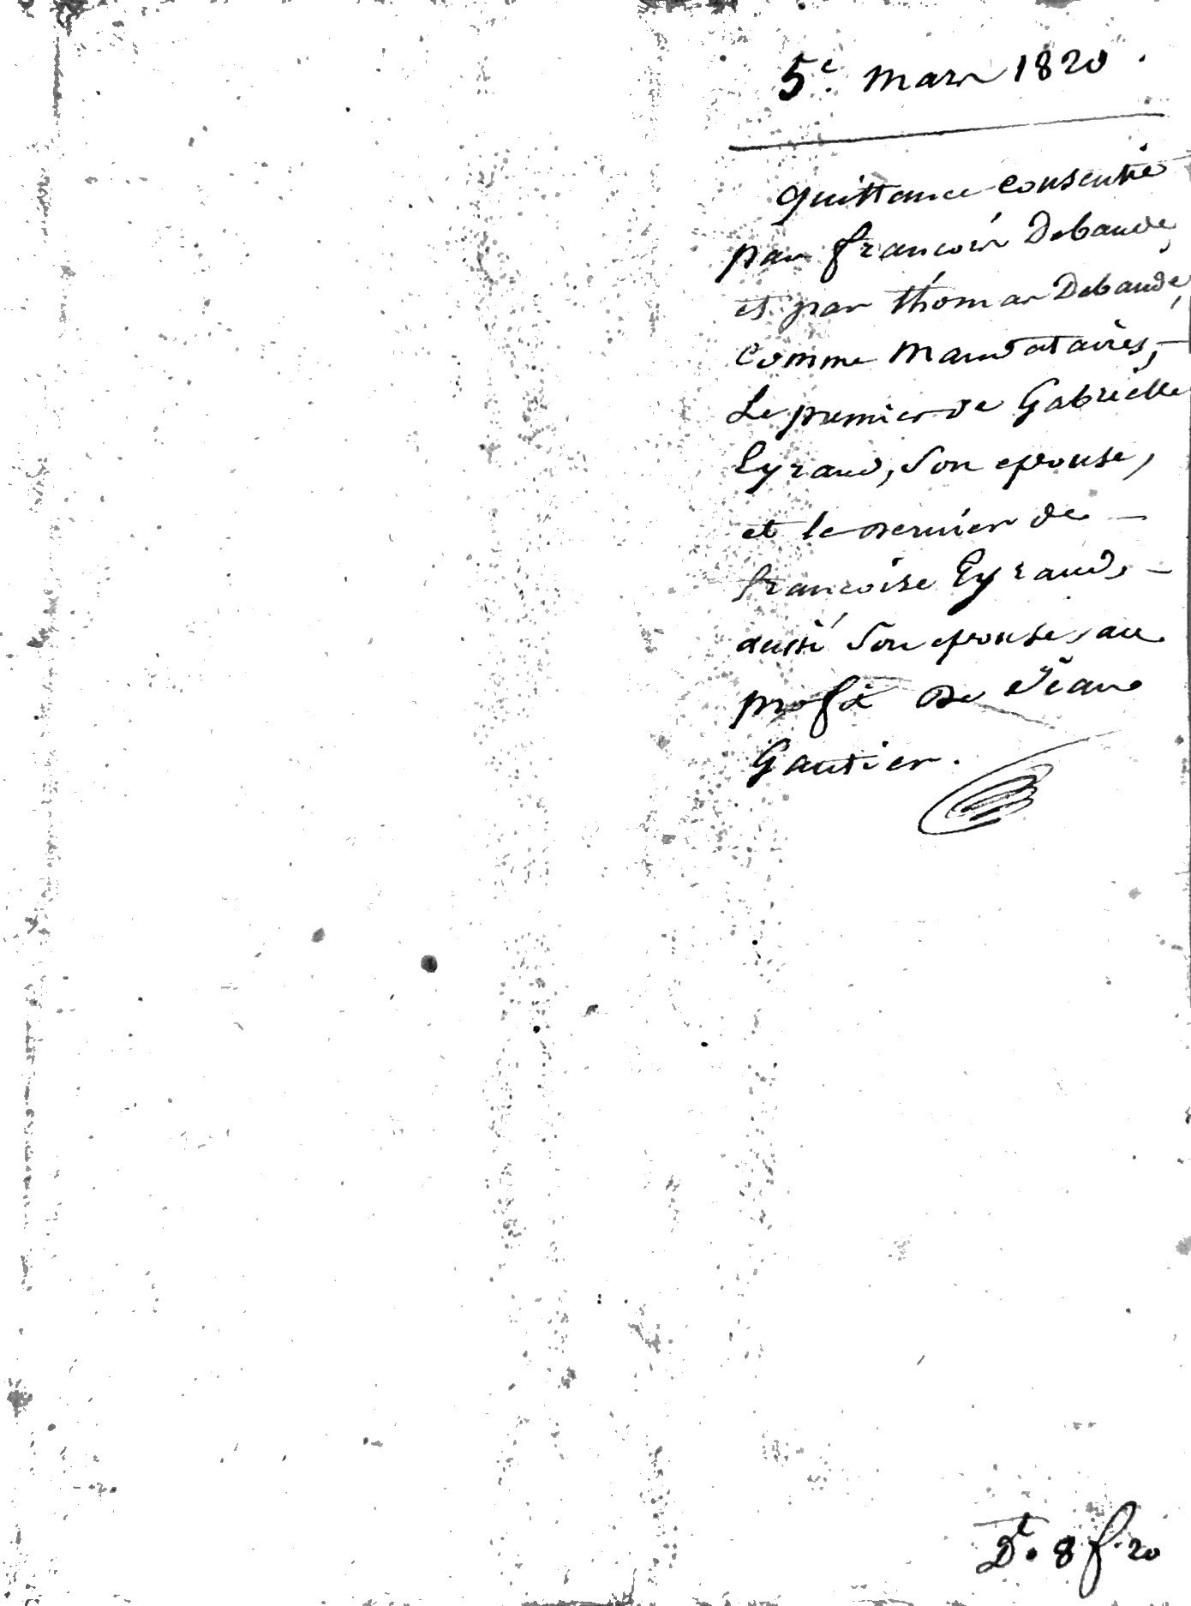 5e. mars 1820.
Quittance consentie
par francois Debaude,
et par thomas Debaude,
comme Mandataires,
Le premier de Gabrielle
Eyraud, Son epouse,
et le dernier de
francoise Eyraud,
aussi Son epouse, au
profit de Jean
Gautier.
Dt. 8 f. 20